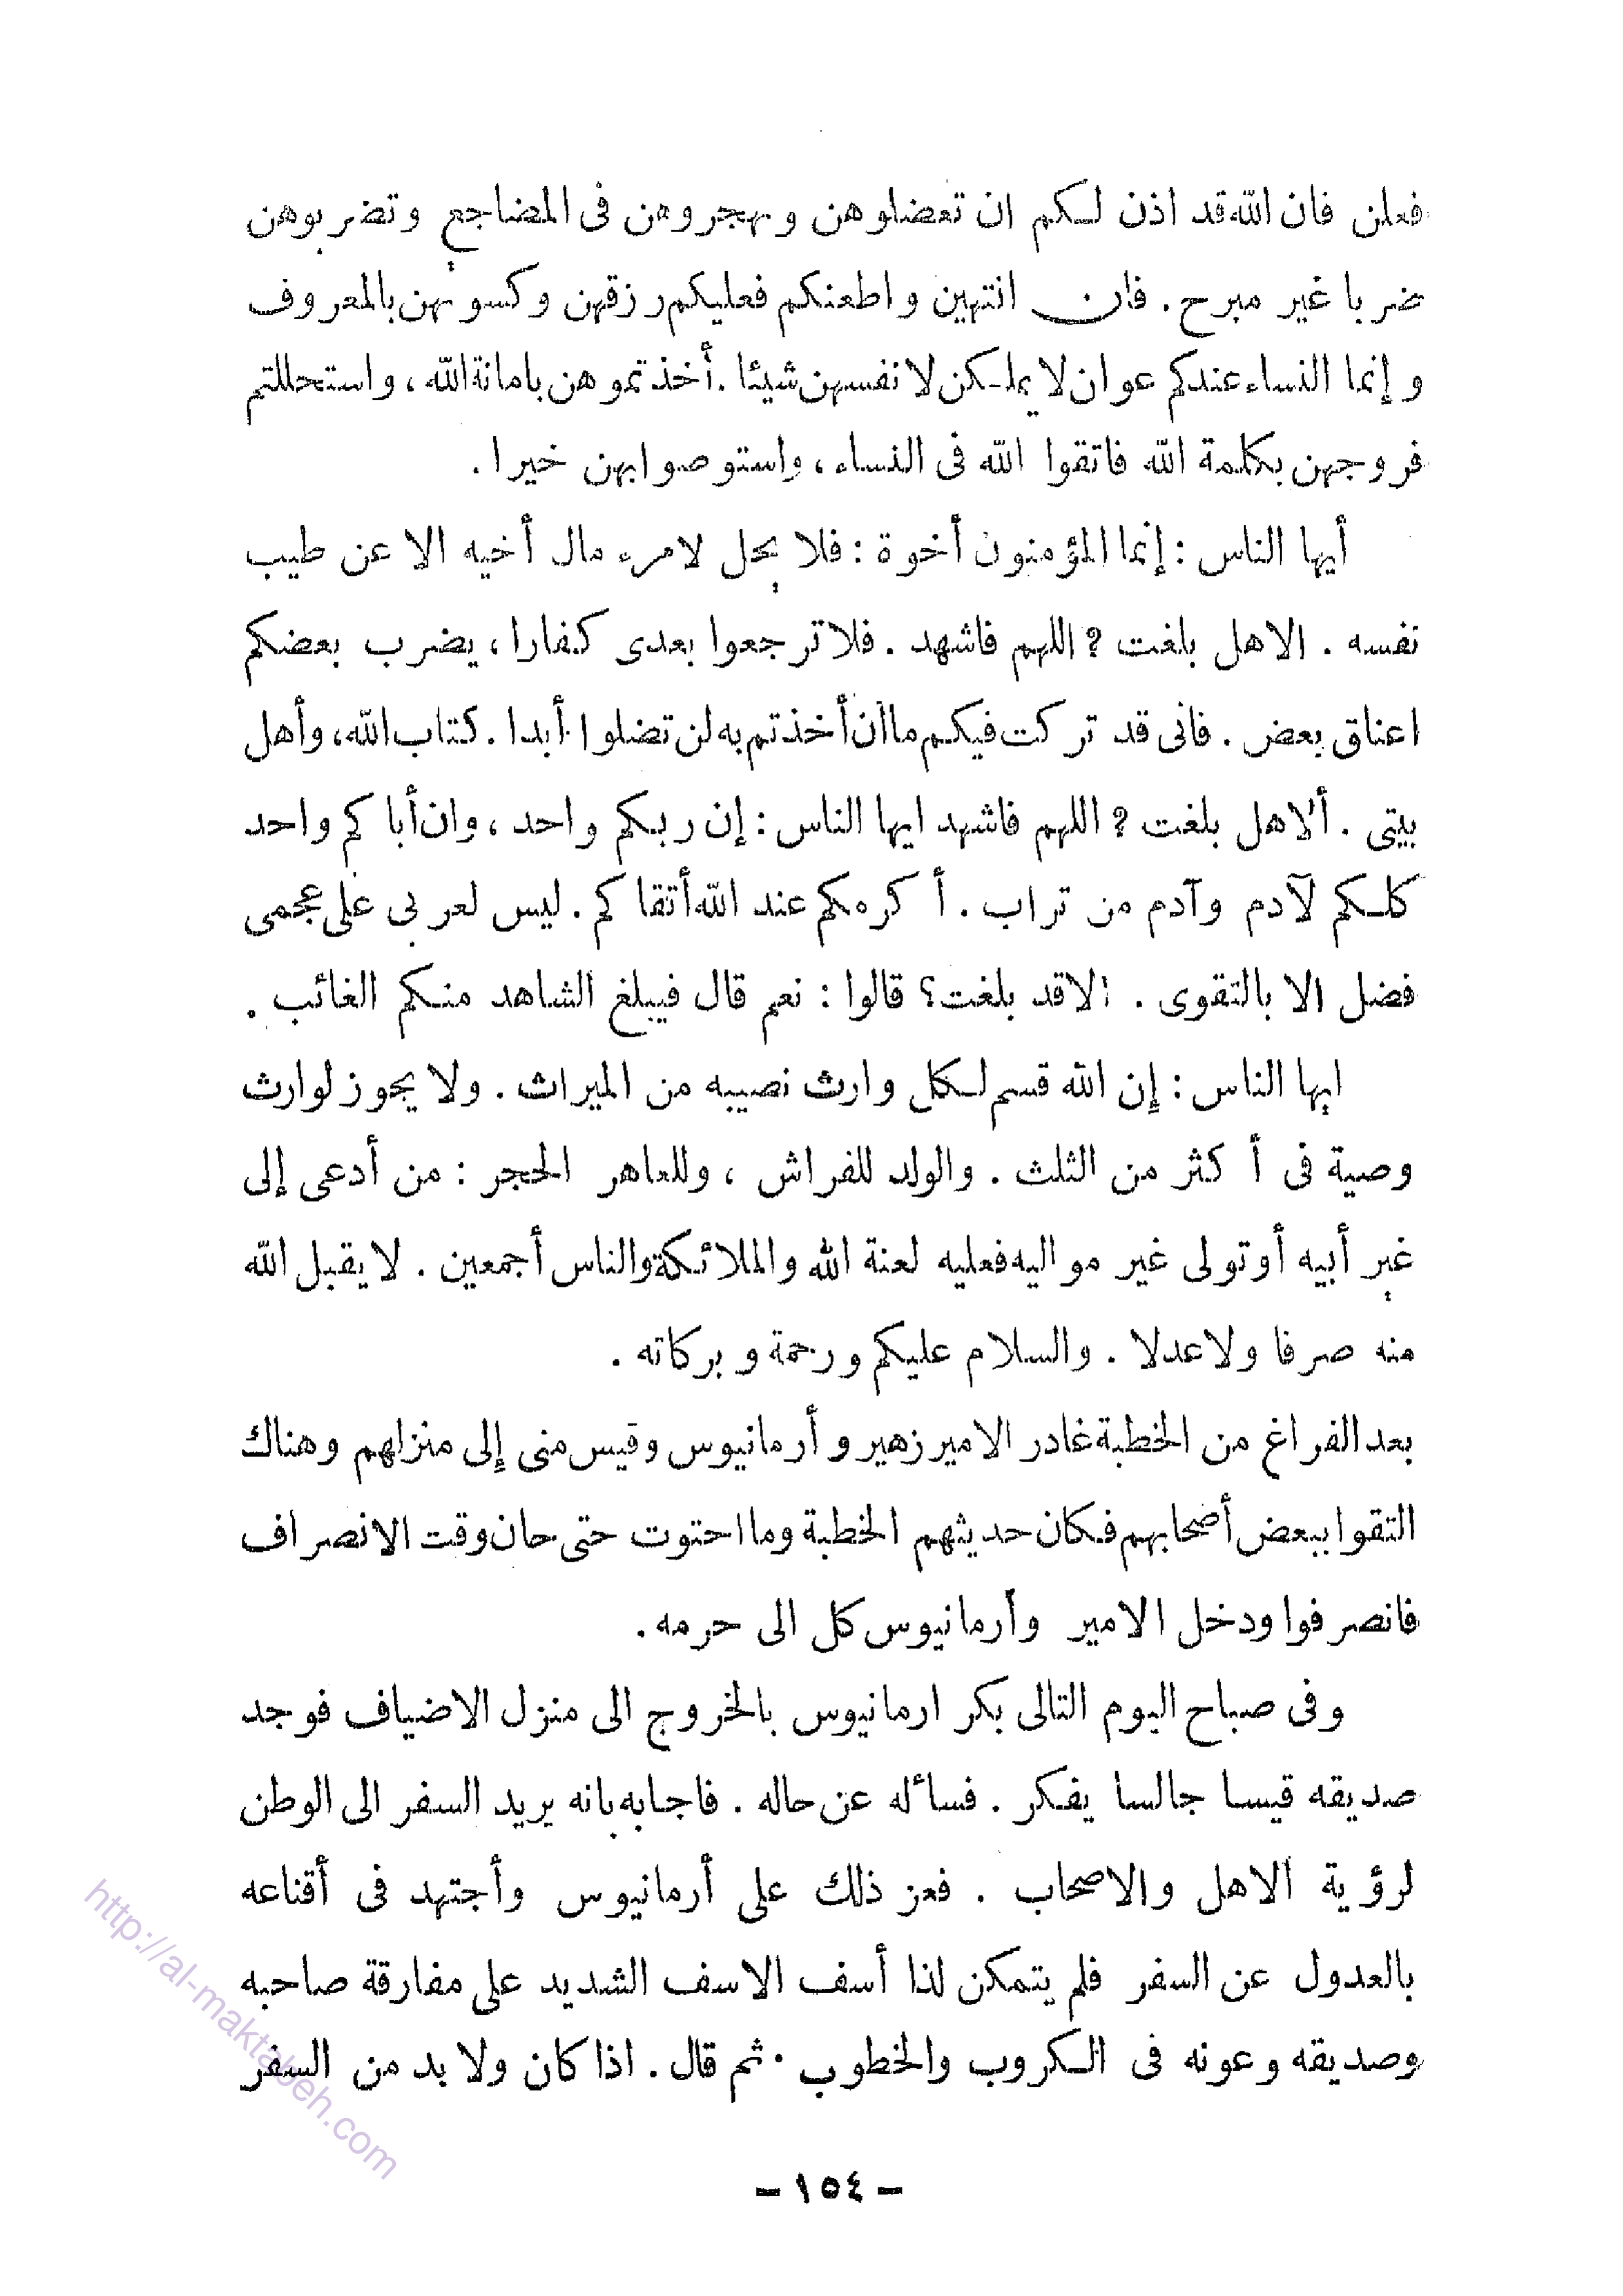 فعلن فان الله قد اذن لكم ان تعضلوهن وتهجروهن فى المضاجع وتضربوهن
ضربا غير مبرح. فان انتهين واطعنكم فعليكم رزقهن وكسوتهن بالمعروف
وإنما النساء عندكم عوان لا يملكن لانفسهن شيئا. أخذتموهن بامانة الله، واستحللتم
فروجهن بكلمة الله فاتقوا الله فى النساء، واستوصوا بهن خيرا.
أيها الناس: إنما المؤمنون أخوة: فلا يحل لامرء مال أخيه الا عن طيب
نفسه. الاهل بلغت؟ اللهم فاشهد. فلا ترجعوا بعدى كفارا، يضرب بعضكم
اعناق بعض. فانى قد تركت فيكم ما أن أخذتم به لن تضلوا أبدا. كتاب الله، وأهل
بيتى. ألاهل بلغت؟ اللهم فاشهد ايها الناس: إن ربكم واحد، وان أباكم واحد
كلكم لآدم وآدم من تراب. أكرمكم عند الله أتقاكم. ليس لعربى على عجمى
فضل الا بالتقوى. الاقد بلغت؟ قالوا: نعم قال فيبلغ الشاهد منكم الغائب.
ايها الناس: إن الله قسم لكل وارث نصيبه من الميراث. ولا يجوز لوارث
وصية فى أكثر من الثلث. والولد للفراش، وللعاهر الحجر: من أدعى إلى
غير أبيه أو تولى غير مواليه فعليه لعنة الله والملائكة والناس أجمعين. لا يقبل الله
منه صرفا ولا عدلا. والسلام عليكم ورحمة وبركاته.
بعد الفراغ من الخطبة غادر الامير زهير وأرمانيوس وقيس منى إلى منزلهم وهناك
التقوا ببعض أصحابهم فكان حديثهم الخطبة وما احتوت حتى حان وقت الانصراف
فانصرفوا ودخل الامير وأرمانيوس كل الى حرمه.
وفى صباح اليوم التالى بكر ارمانيوس بالخروج الى منزل الاضياف فوجد
صديقه قيسا جالسا يفكر. فسأله عن حاله. فاجابه بانه يريد السفر الى الوطن
لرؤية الاهل والاصحاب. فعز ذلك على أرمانيوس وأجتهد فى أقناعه
بالعدول عن السفر فلم يتمكن لذا أسف الاسف الشديد على مفارقة صاحبه
وصديقه وعونه فى الكروب والخطوب. ثم قال. اذا كان ولا بد من السفر
- ١٥٤ -
http://al-maktabeh.com